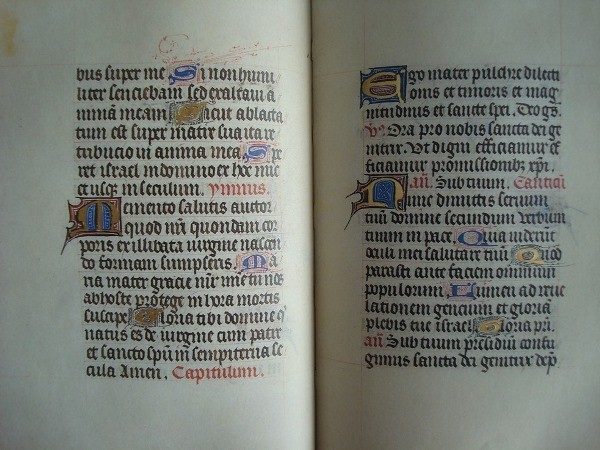 bus super me Si non humi/
liter senciebam sed exaltavi a
nimam meam Sicut ablacta
tum est super matre sua ita re
tribucio in anima mea. Spe
ret israel in domino ex hoc nunc
et usque in seculum. Ymnus.
Memento salutis auctor
quod nri quondam cor
poris ex illibata virgine nascen
do formam sumpseris. Ma
ria mater gracie mater mie tu nos
ab hoste protege in hora mortis
suscipe Gloria tibi domine q
natus es de virgine cum patre
et sancto spu in sempiterna se
cula Amen. Capitulum.
Ego mater pulchre dilecti
onis et timoris et mag
nitudinis et sancte spei. Deo gs.
Vs. Ora pro nobis sancta dei ge
nitrix. Ut digni efficiamur ef
ficiamur promissionibz xpi.
an. Sub tuum. Canticū
Nunc dimittis servum
tuū domine secundum verbum
tuum in pace. Quia viderūt
oculi mei salutare tuū Quod
parasti ante faciem omnium
populorum. Lumen ad reve
lationem gencium et gloriā
plebis tue israel Gloria pri.
an. Sub tuum presidiū confu
gimus sancta dei genitrix dep